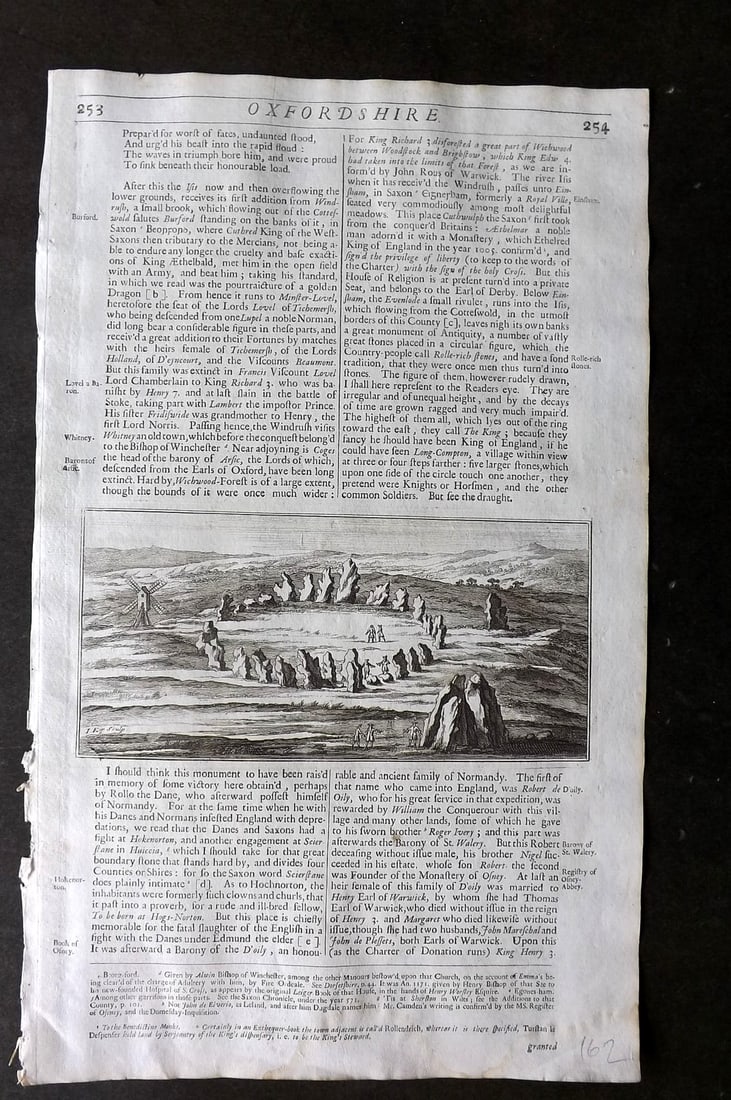 253
OXFORDSHIRE.
254
Prepar'd for worst of fates, undaunted stood,
And urg'd his beast into the rapid floud :
The waves in triumph bore him, and were proud
To sink beneath their honourable load.
After this the Isis now and then overflowing the
lower grounds, receives its first addition from Wind-
rush, a small brook, which flowing out of the Cottes-
Burford.
wold salutes Burford standing on the banks of it, in
Saxon Beoppopd, where Cuthred King of the West-
Saxons then tributary to the Mercians, not being a-
ble to endure any longer the cruelty and base exacti-
ons of King Æthelbald, met him in the open field
with an Army, and beat him ; taking his standard,
in which we read was the pourtraicture of a golden
Dragon [b]. From hence it runs to Minster-Lovel,
heretofore the seat of the Lords Lovel of Tichemersh,
who being descended from one Lupel a noble Norman,
did long bear a considerable figure in these parts, and
receiv'd a great addition to their Fortunes by matches
with the heirs female of Tichemersh, of the Lords
Holland, of D'eyncourt, and the Viscounts Beaumont.
But this family was extinct in Francis Viscount Lovel
Lovel a Ba-
ron.
Lord Chamberlain to King Richard 3. who was ba-
nisht by Henry 7. and at last slain in the battle of
Stoke, taking part with Lambert the impostor Prince.
His sister Fridiswide was grandmother to Henry, the
first Lord Norris. Passing hence, the Windrush visits
Whitney.
Whitney an old town, which before the conquest belong'd
to the Bishop of Winchester. Near adjoyning is Coges
Baronsof
Arsic.
the head of the barony of Arsic, the Lords of which,
descended from the Earls of Oxford, have been long
extinct. Hard by, Wichwood-Forest is of a large extent,
though the bounds of it were once much wider :
For King Richard 3 disforested a great part of Wichwood
between Woodstock and Brightstow, which King Edw 4.
had taken into the limits of that Forest, as we are in-
form'd by John Rous of Warwick. The river Isis
when it has receiv'd the Windrush, passes unto Ein-
sham, in Saxon Eigneꞅham, formerly a Royal Ville,
Einsham.
seated very commodiously among most delightful
meadows. This place Cuthwulph the Saxon first took
from the conquer'd Britains : Æthelmar a noble
man adorn'd it with a Monastery, which Ethelred
King of England in the year 1005. confirm'd, and
sign'd the privilege of liberty (to keep to the words of
the Charter) with the sign of the holy Cross. But this
House of Religion is at present turn'd into a private
Seat, and belongs to the Earl of Derby. Below Ein-
sham, the Evenlode a small rivulet, runs into the Isis,
which flowing from the Cotteswold, in the utmost
borders of this County [c], leaves nigh its own banks
a great monument of Antiquity, a number of vastly
great stones placed in a circular figure, which the
Country-people call Rolle-rich stones, and have a fond
Rolle-rich
stones.
tradition, that they were once men thus turn'd into
stones. The figure of them, however rudely drawn,
I shall here represent to the Readers eye. They are
irregular and of unequal height, and by the decays
of time are grown ragged and very much impair'd.
The highest of them all, which lyes out of the ring
toward the east, they call The King ; because they
fancy he should have been King of England, if he
could have seen Long-Compton, a village within view
at three or four steps farther : five larger stones, which
upon one side of the circle touch one another, they
pretend were Knights or Horsmen, and the other
common Soldiers. But see the draught.
I Kip Sculp.
I should think this monument to have been rais'd
in memory of some victory here obtain'd, perhaps
by Rollo the Dane, who afterward possest himself
of Normandy. For at the same time when he with
his Danes and Normans infested England with depre-
dations, we read that the Danes and Saxons had a
fight at Hokenorton, and another engagement at Scier-
stane in Huiccia, which I should take for that great
boundary stone that stands hard by, and divides four
Counties or Shires : for so the Saxon word Scierstane
Hokenor-
ton.
does plainly intimate [d]. As to Hochnorton, the
inhabitants were formerly such clowns and churls, that
it past into a proverb, for a rude and ill-bred fellow,
To be born at Hogs-Norton. But this place is chiefly
memorable for the fatal slaughter of the English in a
Book of
Osney.
fight with the Danes under Edmund the elder [e].
It was afterward a Barony of the D'oily, an honou-
rable and ancient family of Normandy. The first of
that name who came into England, was Robert de
D'oily.
Oily, who for his great service in that expedition, was
rewarded by William the Conquerour with this vil-
lage and many other lands, some of which he gave
to his sworn brother Roger Ivery ; and this part was
afterwards the Barony of St. Walery. But this Robert
Barony of
St. Walery.
deceasing without issue male, his brother Nigel suc-
ceeded in his estate, whose son Robert the second
was Founder of the Monastery of Osney. At last an
Registry of
Osney-
Abbey.
heir female of this family of D'oily was married to
Henry Earl of Warwick, by whom she had Thomas
Earl of Warwick, who died without issue in the reign
of Henry 3. and Margaret who died likewise without
issue, though she had two husbands, John Mareschal and
John de Plessets, both Earls of Warwick. Upon this
(as the Charter of Donation runs) King Henry 3.
Given by Alwin Bishop of Winchester, among the other Manours bestow'd upon that Church, on the account of Emma's be-
ing clear'd of the charge of Adultery with him, by Fire Ordeale. See Dorsetshire, p. 44. It was An. 1171. given by Henry Bishop of that See to
his new-founded Hospital of S. Cross, as appears by the original Leiger Book of that House, in the hands of Henry Worsley Esquire.
Among other garrisons in those parts. See the Saxon Chronicle, under the year 571. 'Tis at Sherston in Wilts ; see the Additions to that
County, p. 101. Not John de Eiverio, as Leland, and after him Dugdale names him : Mr. Camden's writing is confirm'd by the MS. Register
of Osency, and the Domesday-Inquisition.
To the Benedictine Monks. Certainly in an Exchequer-book the town adjacent is call'd Rollendrich, whereas it is there specified, Turstan le
Despenser held land by Serjeantry of the King's dispensary, i. e. to be the King's Steward.
granted
162